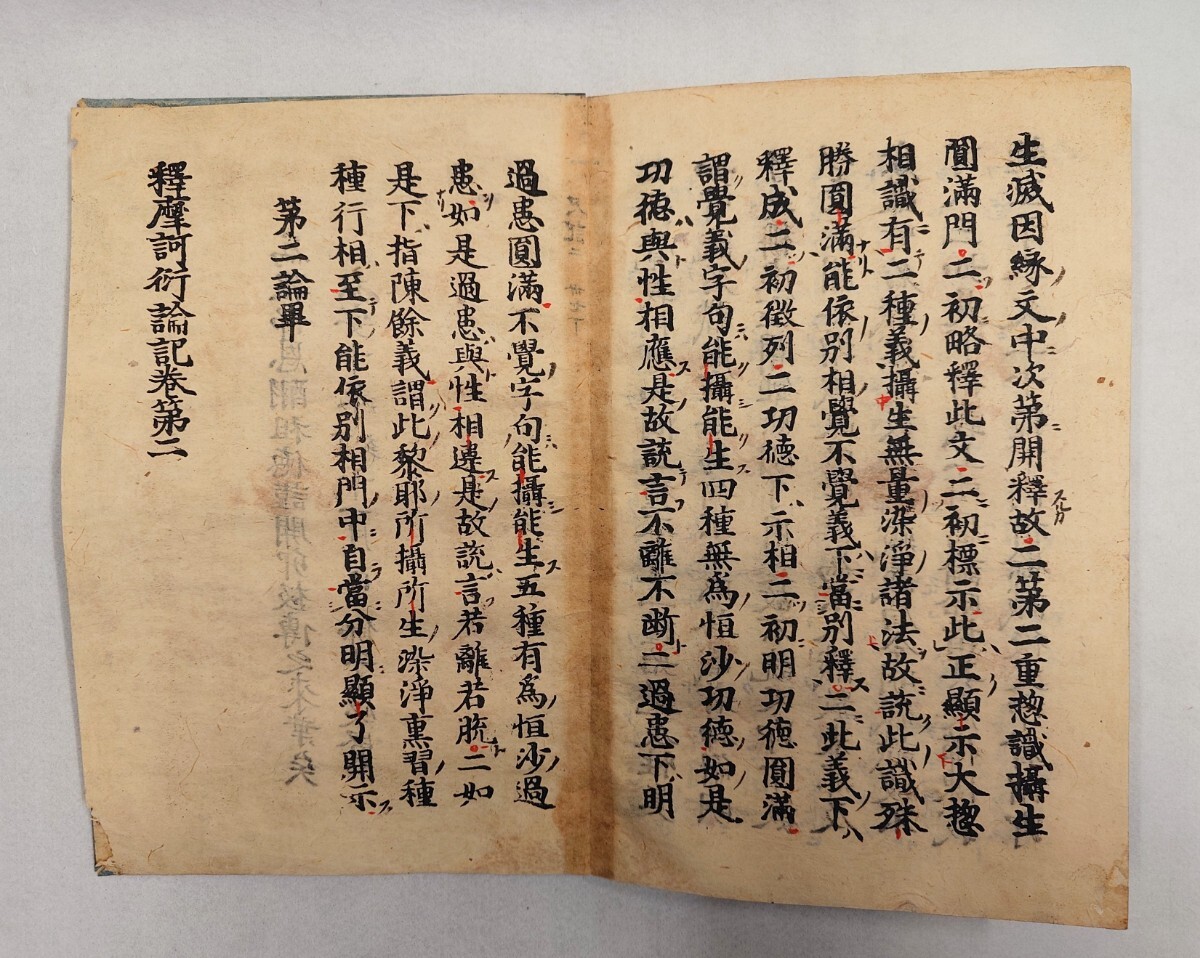 生滅因縁文中次第開釋故二第二重惣識攝生
圓滿門二初略釋此文二初標示此正顯示大惣
相識有二種義攝生無量染淨諸法故説此識殊
勝圓滿能依別相覺不覺義下當別釋二此義下
釋成二初徴列二功德下示相二初明功德圓滿
謂覺義字句能攝能生四種無為恒沙功德如是
功德與性相應是故説言不離不断二過患下明
過患圓滿不覺字句能攝能生五種有為恒沙過
患如是過患與性相違是故説言若離若脱二如
是下指陳餘義謂此黎耶所攝所生染淨熏習種
種行相至下能依別相門中自當分明顯了開示
第二論畢
釋摩訶衍論記巻第二